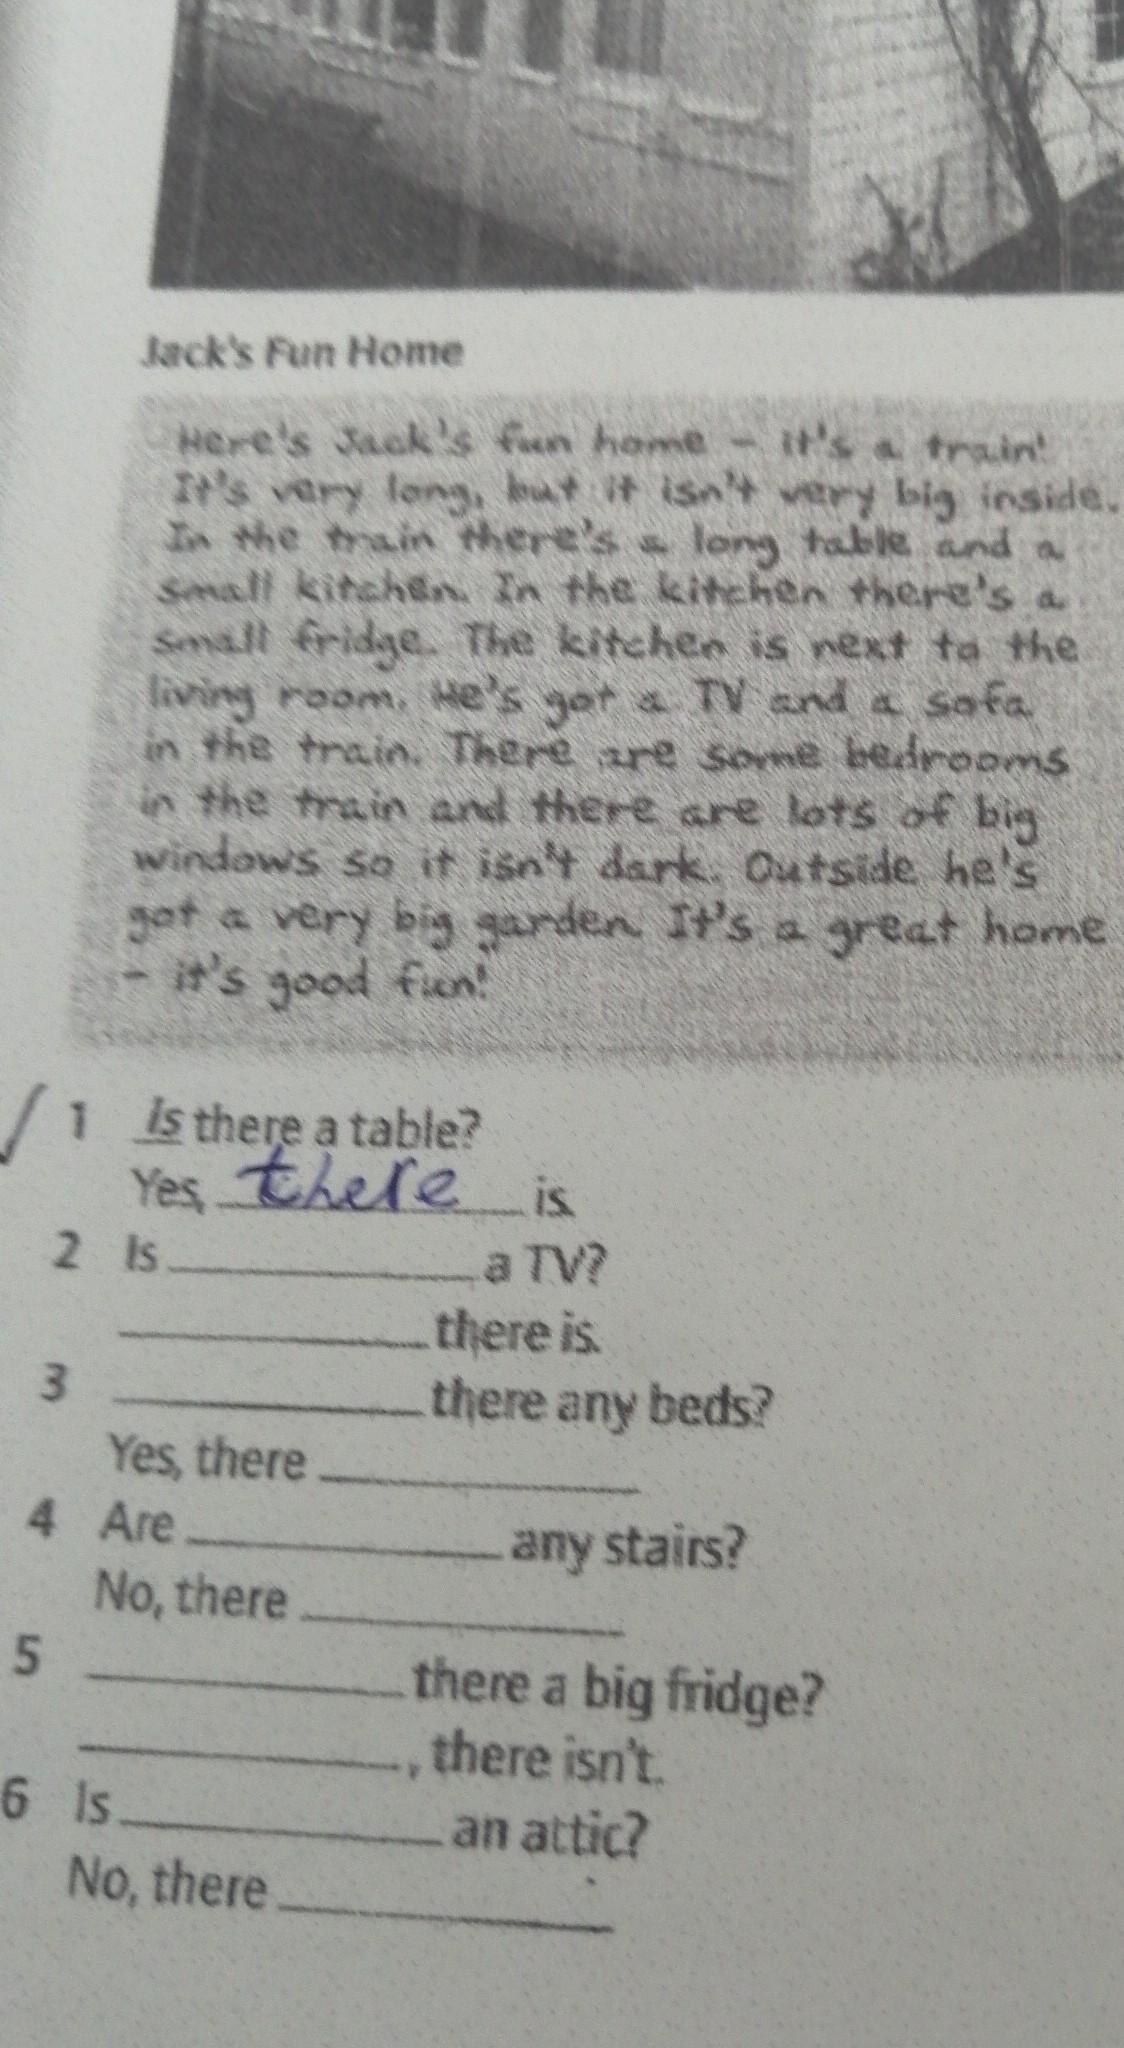 Jack's Fun Home
Here's Jack's fun home – it's a train!
It's very long, but it isn't very big inside.
In the train there's a long table and a
small kitchen. In the kitchen there's a
small fridge. The kitchen is next to the
living room. He's got a TV and a sofa
in the train. There are some bedrooms
in the train and there are lots of big
windows so it isn't dark. Outside he's
got a very big garden. It's a great home
– it's good fun!
1 Is there a table?
Yes, there is.
2 Is ____________ a TV?
____________ there is.
3 ____________ there any beds?
Yes, there ____________
4 Are ____________ any stairs?
No, there ____________
5 ____________ there a big fridge?
____________, there isn't.
6 Is ____________ an attic?
No, there ____________